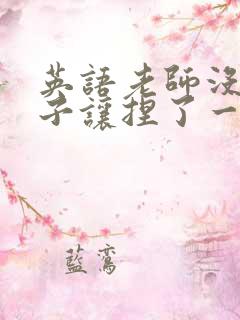 英語老師沒
子讓捏了一
藍鸞